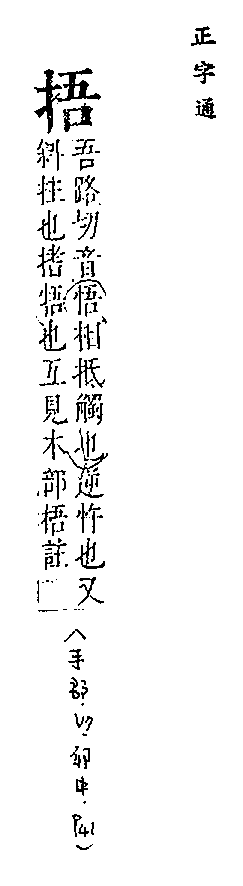 正字通
捂
吾路切音悟相抵觸也逆忤也又
斜拄也搘捂也互見木部梧註
(手部·ㄐ·卯中·P41)